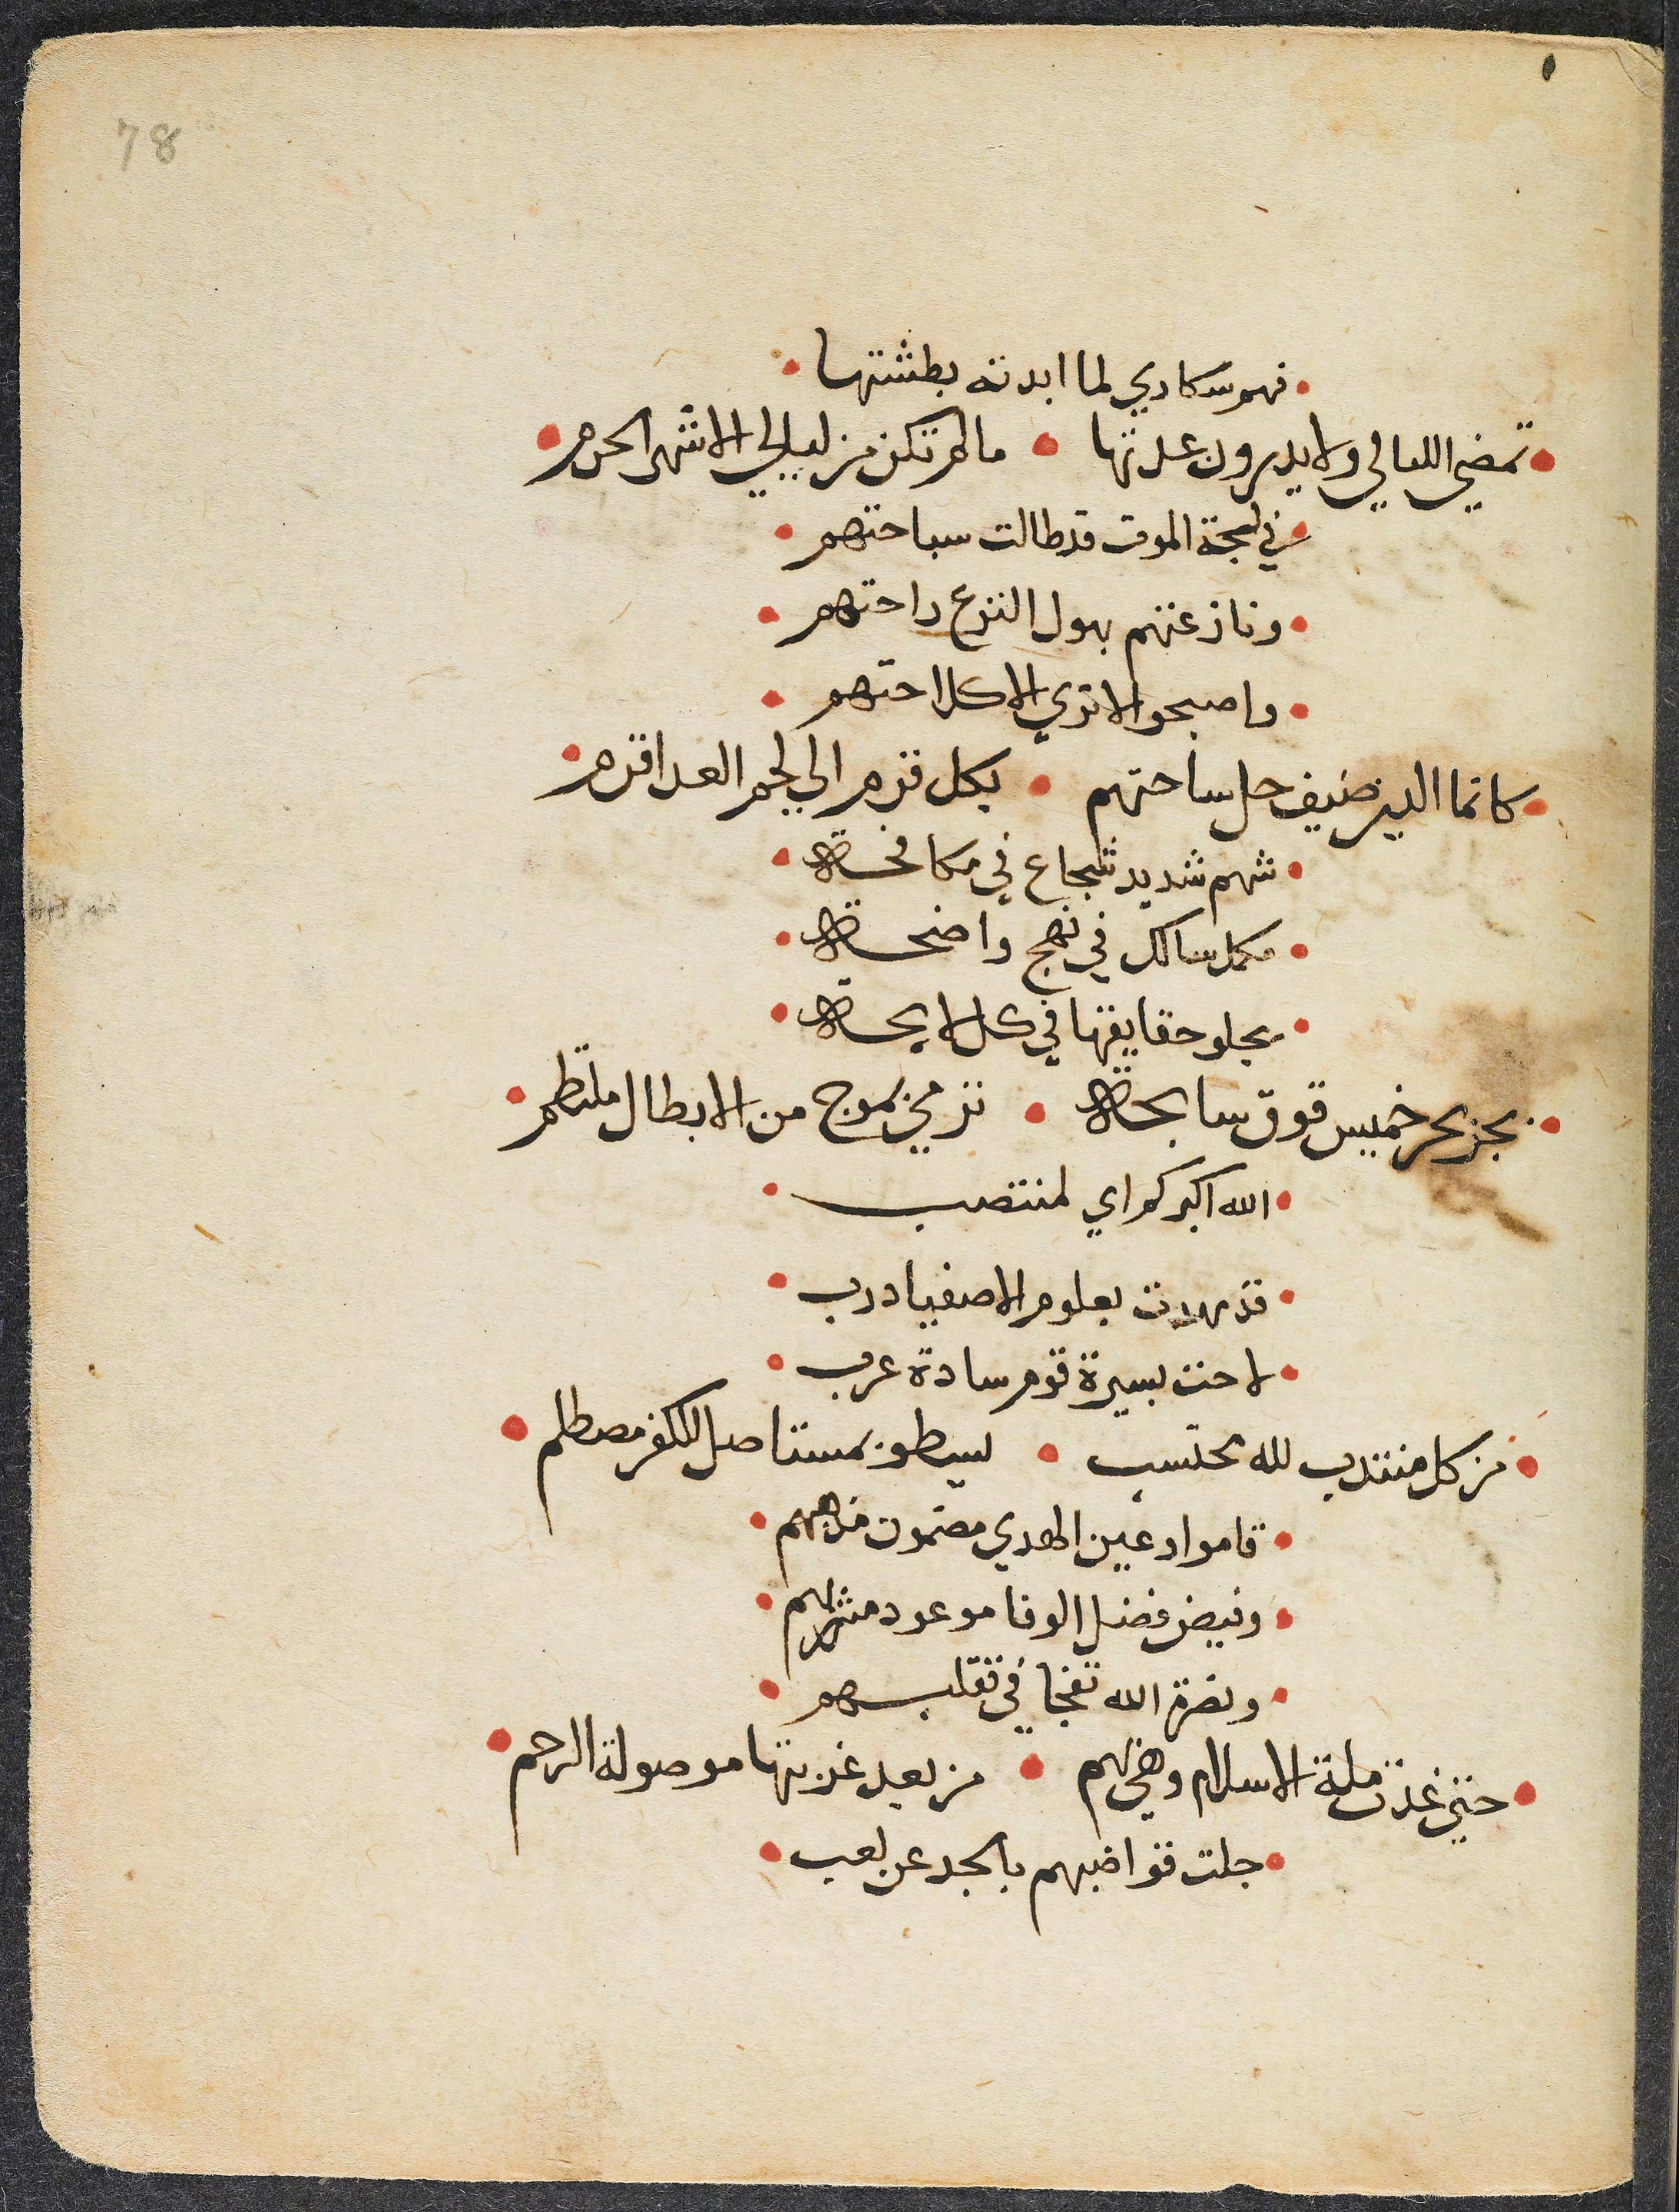 78
فهم سكاري لما ابدته بطشتها
تمضي الليالي ولا يدرون عدتها ما لم تكن من ليالي الاشهر الحرم
في لجة الموت قد طالت سباحتهم
ونازعتهم بهول النزع راحتهم
واصبحوا لا تري الا كلاحتهم
كانما الدين ضيف حل ساحتهم بكل قرم الي لحم العدا قرم
شهم شديد شجاع في مكافحة
مكمل سالك في نهج واضحة
يجلو حقايقها في كل لايحة
يجر بحر خميس فوق سابحة ترمي بموج من الابطال ملتطم
الله اكبر كم اي لمنتصب
قد مهدت بعلوم الاصفيا درب
لاحت بسيرة قوم سادة عرب
من كل منتدب لله محتسب يسطو بمستاصل للكفر مصطلم
قاموا وعين الهدي مضمون مذهبهم
وفيض فضل الوفا موعود مشربهم
ونصرة الله تفجا في تقلبهم
حتي غدت ملة الاسلام وهي بهم من بعد غربتها موصولة الرحم
جلت قواضبهم بالجد عن لعب